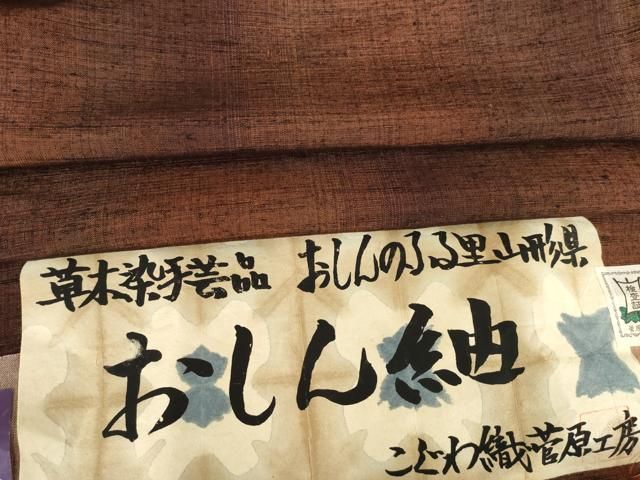 草木染手芸品 おしんのふる里山形県
おしん紬
こぐわ織菅原工房